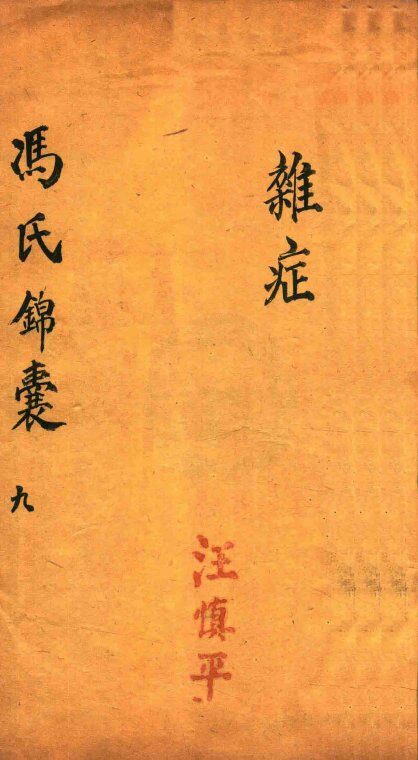 雜症
汪慎平
馮氏錦囊 九